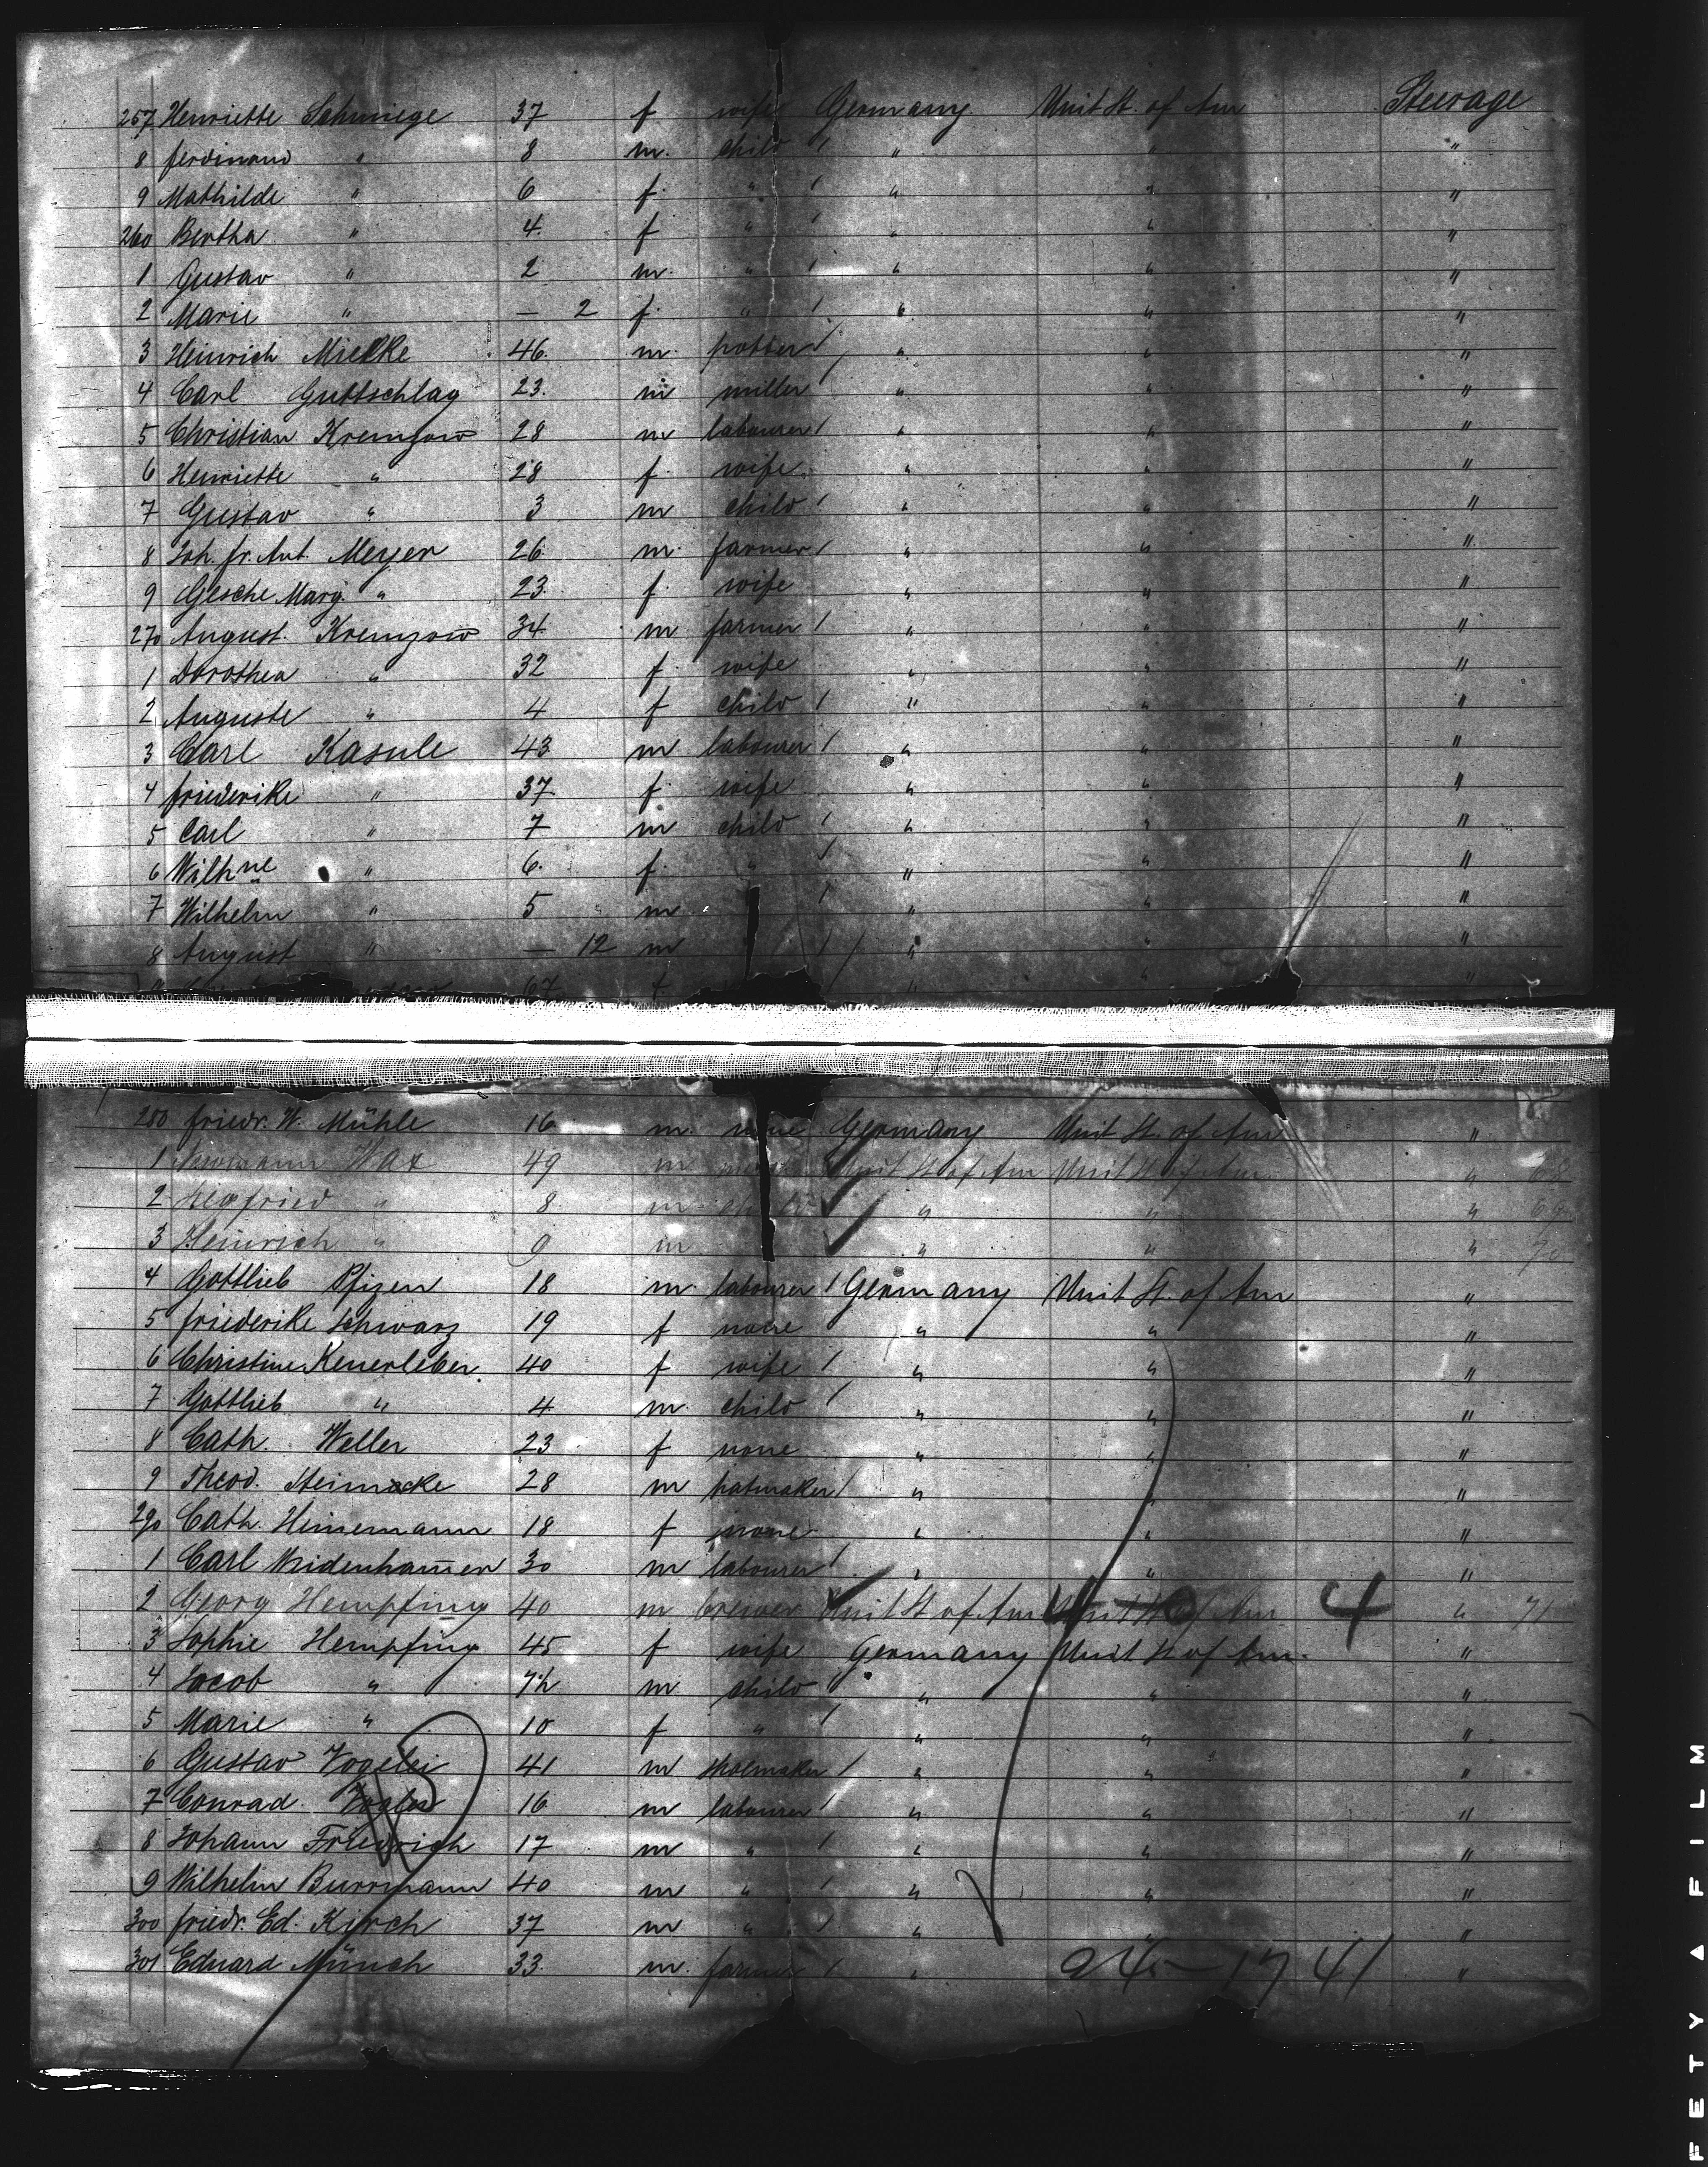 257 Henriette Schmiege 37 f wife Germany Unit St. of Am Steerage
8 Ferdinand " 8 m. child / " " "
9 Mathilde " 6 f. " / " " "
260 Bertha " 4. f " / " " "
1 Gustav " 2 m. " / " " "
2 Marie " — 2 f. " / " " "
3 Heinrich Mielke 46. m. potter / " " "
4 Carl Guttschlag 23. m miller / " " "
5 Christian Kremzow 28 m labourer / " " "
6 Henriette " 28 f. wife " " "
7 Gustav " 3 m child / " " "
8 Joh. fr. Ant. Meyer 26 m. farmer / " " "
9 Gesche Marg. " 23. f. wife " " "
270 August. Kremzow 34 m farmer / " " "
1 Dorothea " 32 f wife " " "
2 Auguste " 4 f child / " " "
3 Carl Kasule 43 m labourer / " " "
4 friederike " 37 f. wife " " "
5 Carl " 7 m child / " " "
6 Wilhne " 6. f. " / " " "
7 Wilhelm " 5 m / " " "
8 August " — 12 m / " " "
67 f
280 friedr. W. Mühle 16 m. none Germany Unit St. of Am "
1 Wax 49 m Unit St of Am Unit St of Am "
2 Siegfried " 8 m child " " " 69
3 Heinrich " 9 m " " " 70
4 Gottlieb Pfizen 18 m. labourer / Germany Unit St. of Am "
5 friederike Schwarz 19 f none " " "
6 Christine Keuerleber. 40 f wife / " " "
7 Gottlieb " 4 m. child / " " "
8 Cath. Weller 23 f none " " "
9 Theod. Steinecke 28 m hatmaker / " " "
290 Cath. Heinemann 18 f none " " "
1 Carl Weidenhamer 30 m labourer / " " "
2 Georg Hempfing 40 m brewer Unit St of Am Unit St of Am 4 " 71
3 Sophie Hempfing 45 f wife Germany Unit St of Am. "
4 Jacob " 7½ m child " " "
5 Marie " 10 f " / " " "
6 Gustav Vogelei 41 m shoemaker / " " "
7 Conrad Vogler 16 m labourer / " " "
8 Johann Friedrich 17 m " / " " "
9 Wilhelm Burrmann 40 m " / " " "
300 friedr. Ed. Kirch 37 m " / " " "
301 Eduard Münch 33. m. farmer / " "
FETY ▲ FILM